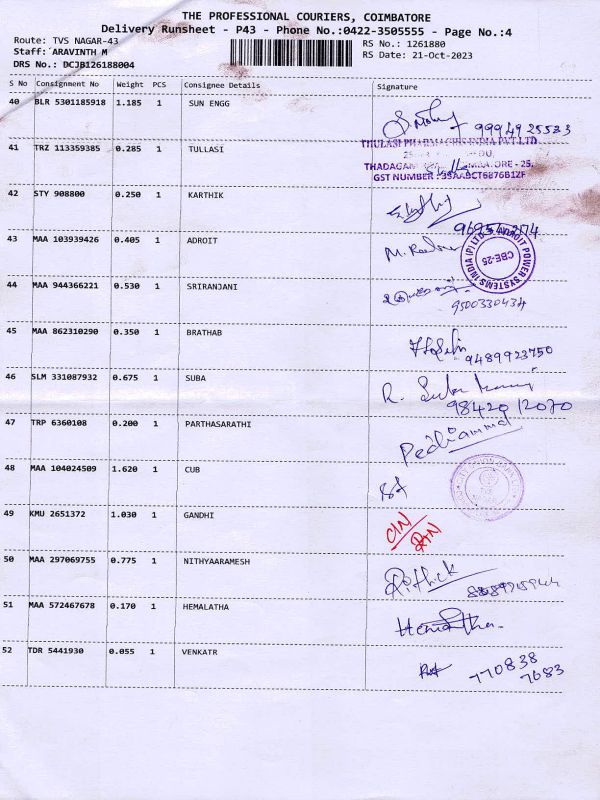 THE PROFESSIONAL COURIERS, COIMBATORE
Delivery Runsheet - P43 - Phone No.:0422-3505555 - Page No.:4
Route: TVS NAGAR-43
RS No.: 1261880
Staff: ARAVINTH M
RS Date: 21-Oct-2023
DRS No.: DCJB126188004
S No Consignment No Weight PCS Consignee Details Signature
40 BLR 5301185918 1.185 1 SUN ENGG
99949 25533
THULASI PHARMACIES INDIA PVT LTD
41 TRZ 113359385 0.285 1 TULLASI
THADAGAM COIMBATORE - 25.
GST NUMBER : 33AABCT6876B1ZF
42 STY 908800 0.250 1 KARTHIK
43 MAA 103939426 0.405 1 ADROIT
ADROIT POWER SYSTEMS INDIA (P) LTD
CBE-25
44 MAA 944366221 0.530 1 SRIRANJANI
9500330434
45 MAA 862310290 0.350 1 BRATHAB
9489923750
46 SLM 331087932 0.675 1 SUBA
98420 12070
47 TRP 6360108 0.200 1 PARTHASARATHI
Pechiammal
48 MAA 104024509 1.620 1 CUB
49 KMU 2651372 1.030 1 GANDHI
C/N
RTN
50 MAA 297069755 0.775 1 NITHYAARAMESH
51 MAA 572467678 0.170 1 HEMALATHA
Hemalatha.
52 TDR 5441930 0.055 1 VENKATR
770838
7683